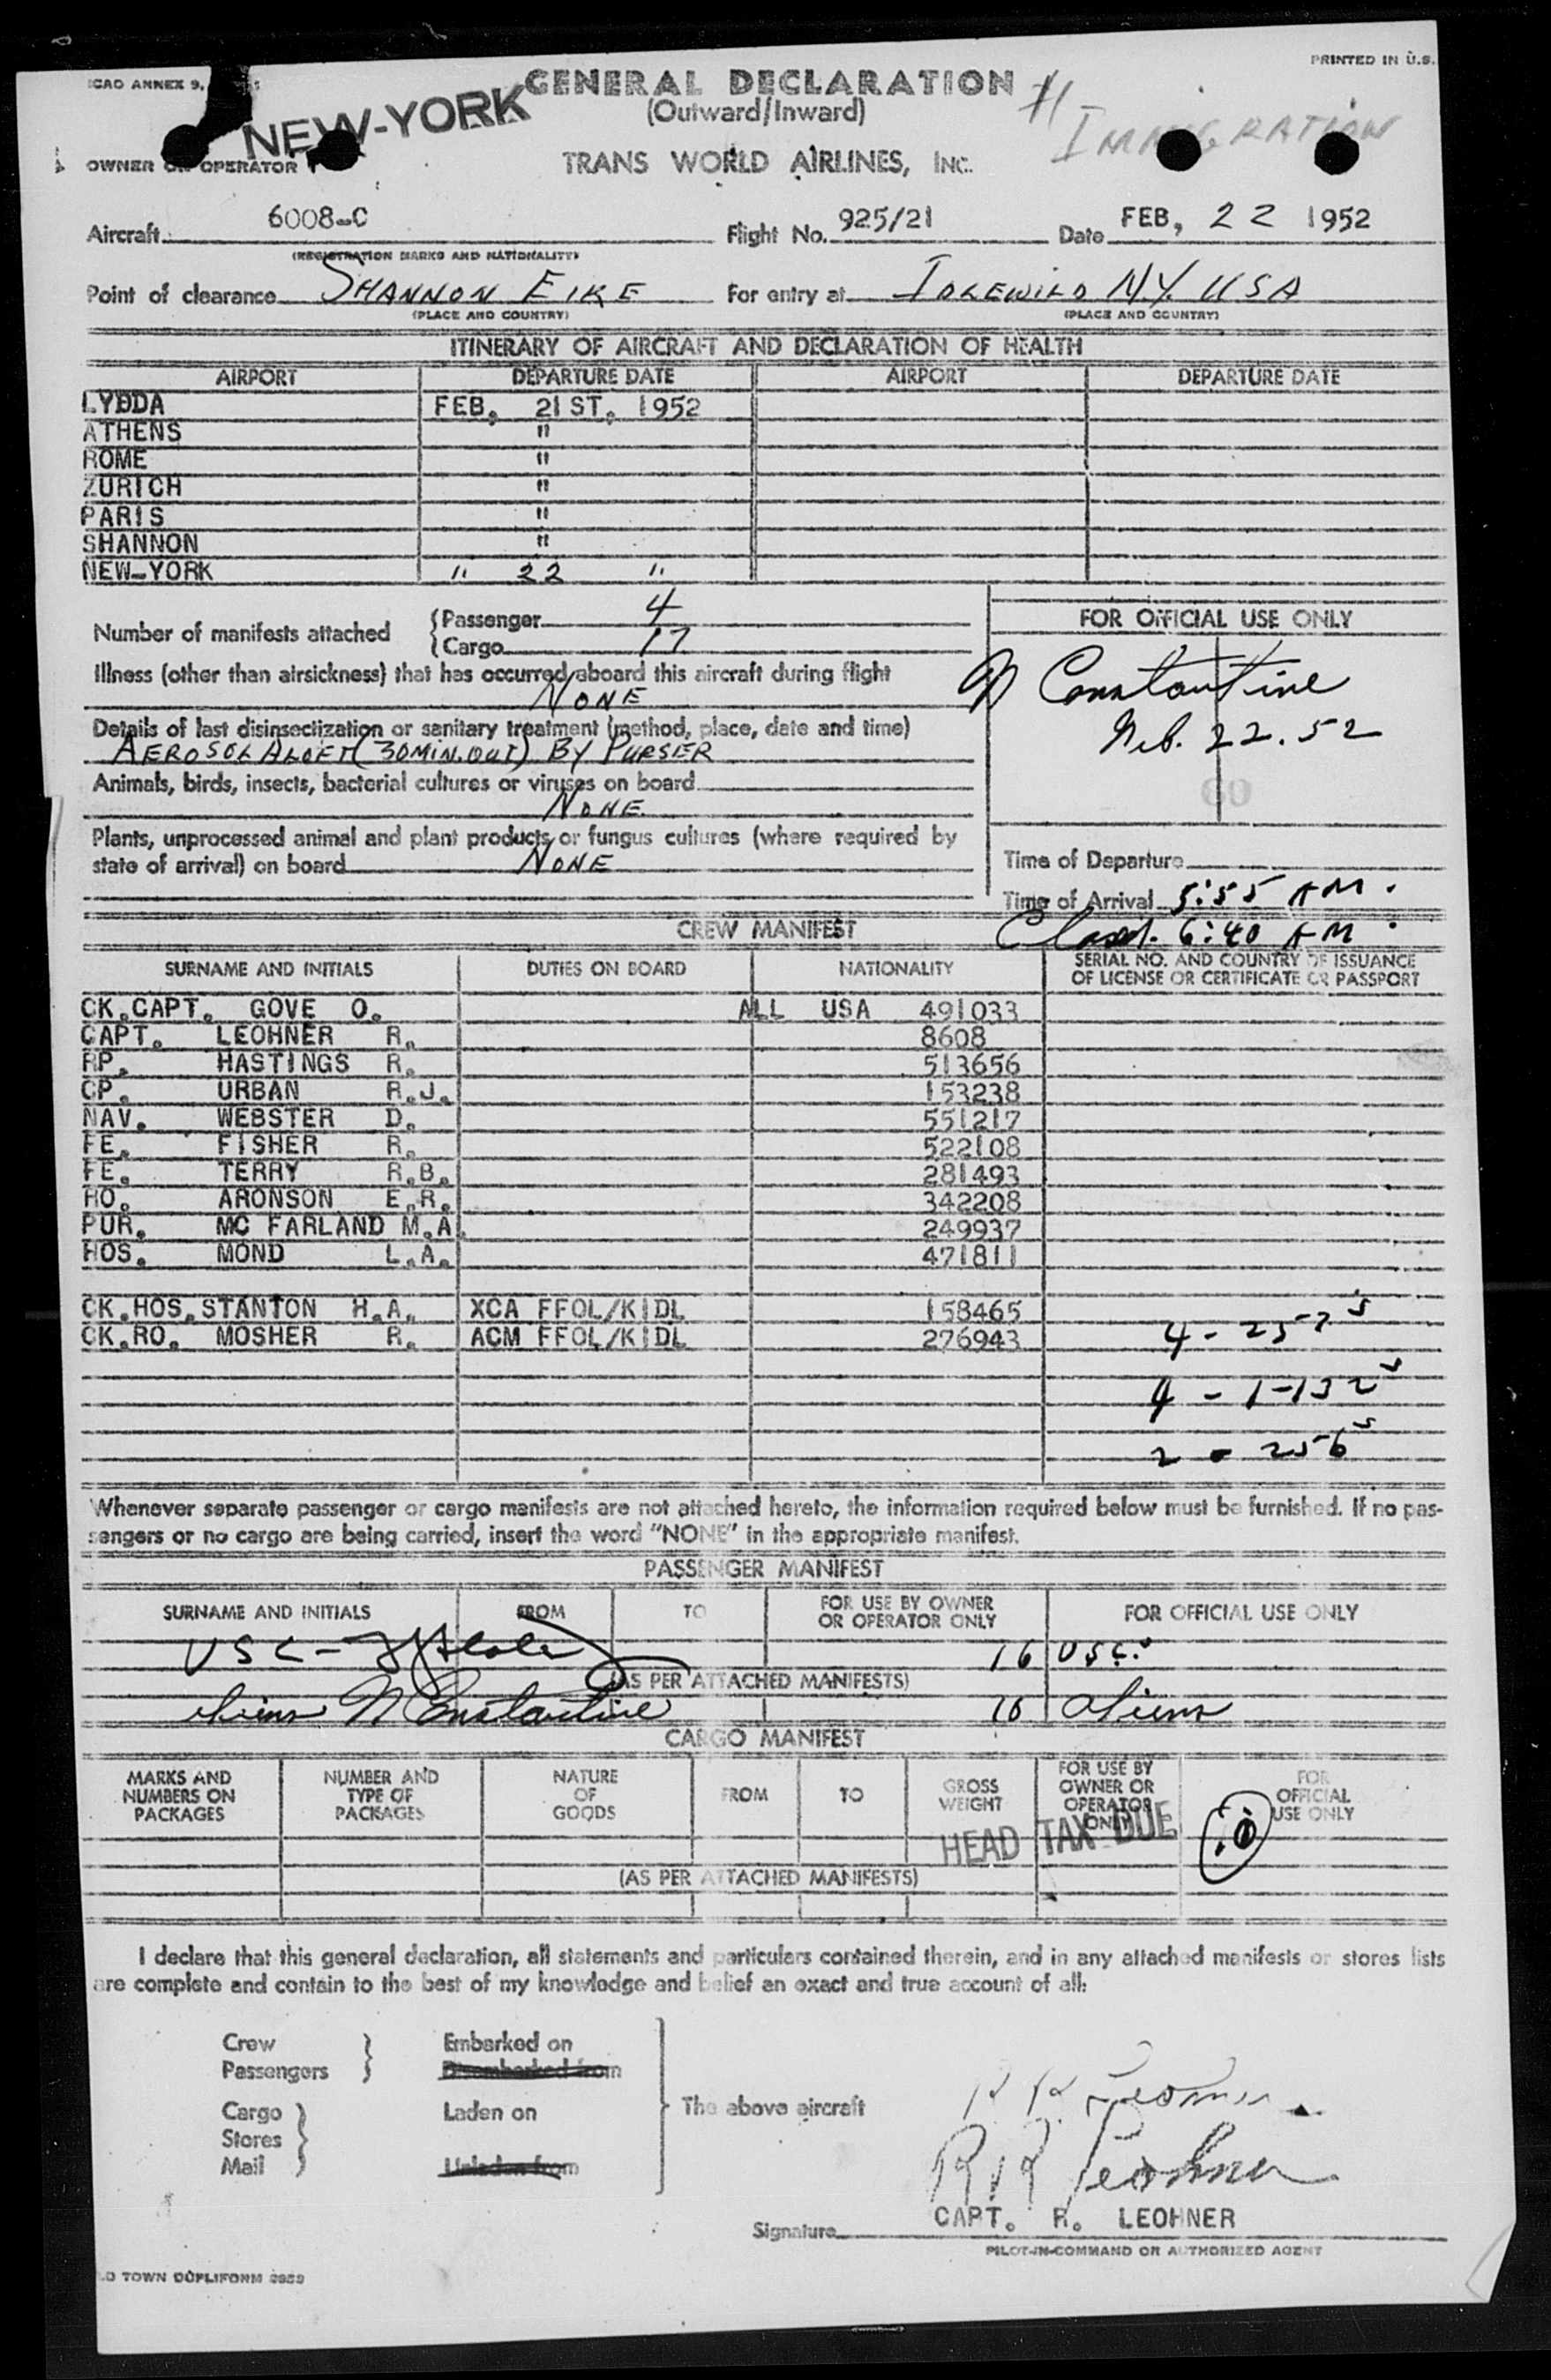 ICAO ANNEX 9,
PRINTED IN U.S.
GENERAL DECLARATION
(Outward/Inward)
#1
IMMIGRATION
NEW-YORK
OWNER OR OPERATOR
TRANS WORLD AIRLINES, INC.
Aircraft 6008-C Flight No. 925/21 Date FEB, 22 1952
(REGISTRATION MARKS AND NATIONALITY)
Point of clearance SHANNON EIRE For entry at IDLEWILD N.Y. USA
(PLACE AND COUNTRY) (PLACE AND COUNTRY)
ITINERARY OF AIRCRAFT AND DECLARATION OF HEALTH
AIRPORT DEPARTURE DATE AIRPORT DEPARTURE DATE
LYDDA FEB. 21ST. 1952
ATHENS "
ROME "
ZURICH "
PARIS "
SHANNON "
NEW-YORK " 22 "
Number of manifests attached
Passenger 4
Cargo 17
Illness (other than airsickness) that has occurred aboard this aircraft during flight
NONE
Details of last disinsectization or sanitary treatment (method, place, date and time)
AEROSOL ALOFT (30MIN. OUT) BY PURSER
Animals, birds, insects, bacterial cultures or viruses on board
NONE
Plants, unprocessed animal and plant products or fungus cultures (where required by
state of arrival) on board NONE
FOR OFFICIAL USE ONLY
N Constantine
Feb. 22.52
60
Time of Departure
Time of Arrival 5:55 AM.
Closed. 6:40 AM.
CREW MANIFEST
SURNAME AND INITIALS DUTIES ON BOARD NATIONALITY SERIAL NO. AND COUNTRY OF ISSUANCE
OF LICENSE OR CERTIFICATE OR PASSPORT
CK.CAPT. GOVE O. ALL USA 491033
CAPT. LEOHNER R. 8608
RP. HASTINGS R. 513656
CP. URBAN R.J. 153238
NAV. WEBSTER D. 551217
FE. FISHER R. 522108
FE. TERRY R.B. 281493
RO. ARONSON E.R. 342208
PUR. MC FARLAND M.A. 249937
HOS. MOND L.A. 471811
CK.HOS.STANTON H.A. XCA FFOL/KIDL 158465
CK.RO. MOSHER R. ACM FFOL/KIDL 276943
4 - 257 5
4 - 1-132 5
2 - 256 5
Whenever separate passenger or cargo manifests are not attached hereto, the information required below must be furnished. If no pas-
sengers or no cargo are being carried, insert the word "NONE" in the appropriate manifest.
PASSENGER MANIFEST
SURNAME AND INITIALS FROM TO FOR USE BY OWNER
OR OPERATOR ONLY FOR OFFICIAL USE ONLY
USC - 16 USC.
(AS PER ATTACHED MANIFESTS)
Aliens N Constantine 10 Aliens
CARGO MANIFEST
MARKS AND
NUMBERS ON
PACKAGES
NUMBER AND
TYPE OF
PACKAGES
NATURE
OF
GOODS
FROM
TO
GROSS
WEIGHT
FOR USE BY
OWNER OR
OPERATOR
ONLY
FOR
OFFICIAL
USE ONLY
HEAD TAX DUE
(AS PER ATTACHED MANIFESTS)
I declare that this general declaration, all statements and particulars contained therein, and in any attached manifests or stores lists
are complete and contain to the best of my knowledge and belief an exact and true account of all:
Crew
Passengers
Embarked on
Disembarked from
Cargo
Stores
Mail
Laden on
Unladen from
The above aircraft
R R Leohner
R R Leohner
CAPT. R. LEOHNER
Signature
PILOT-IN-COMMAND OR AUTHORIZED AGENT
LD TOWN DUPLIFORM